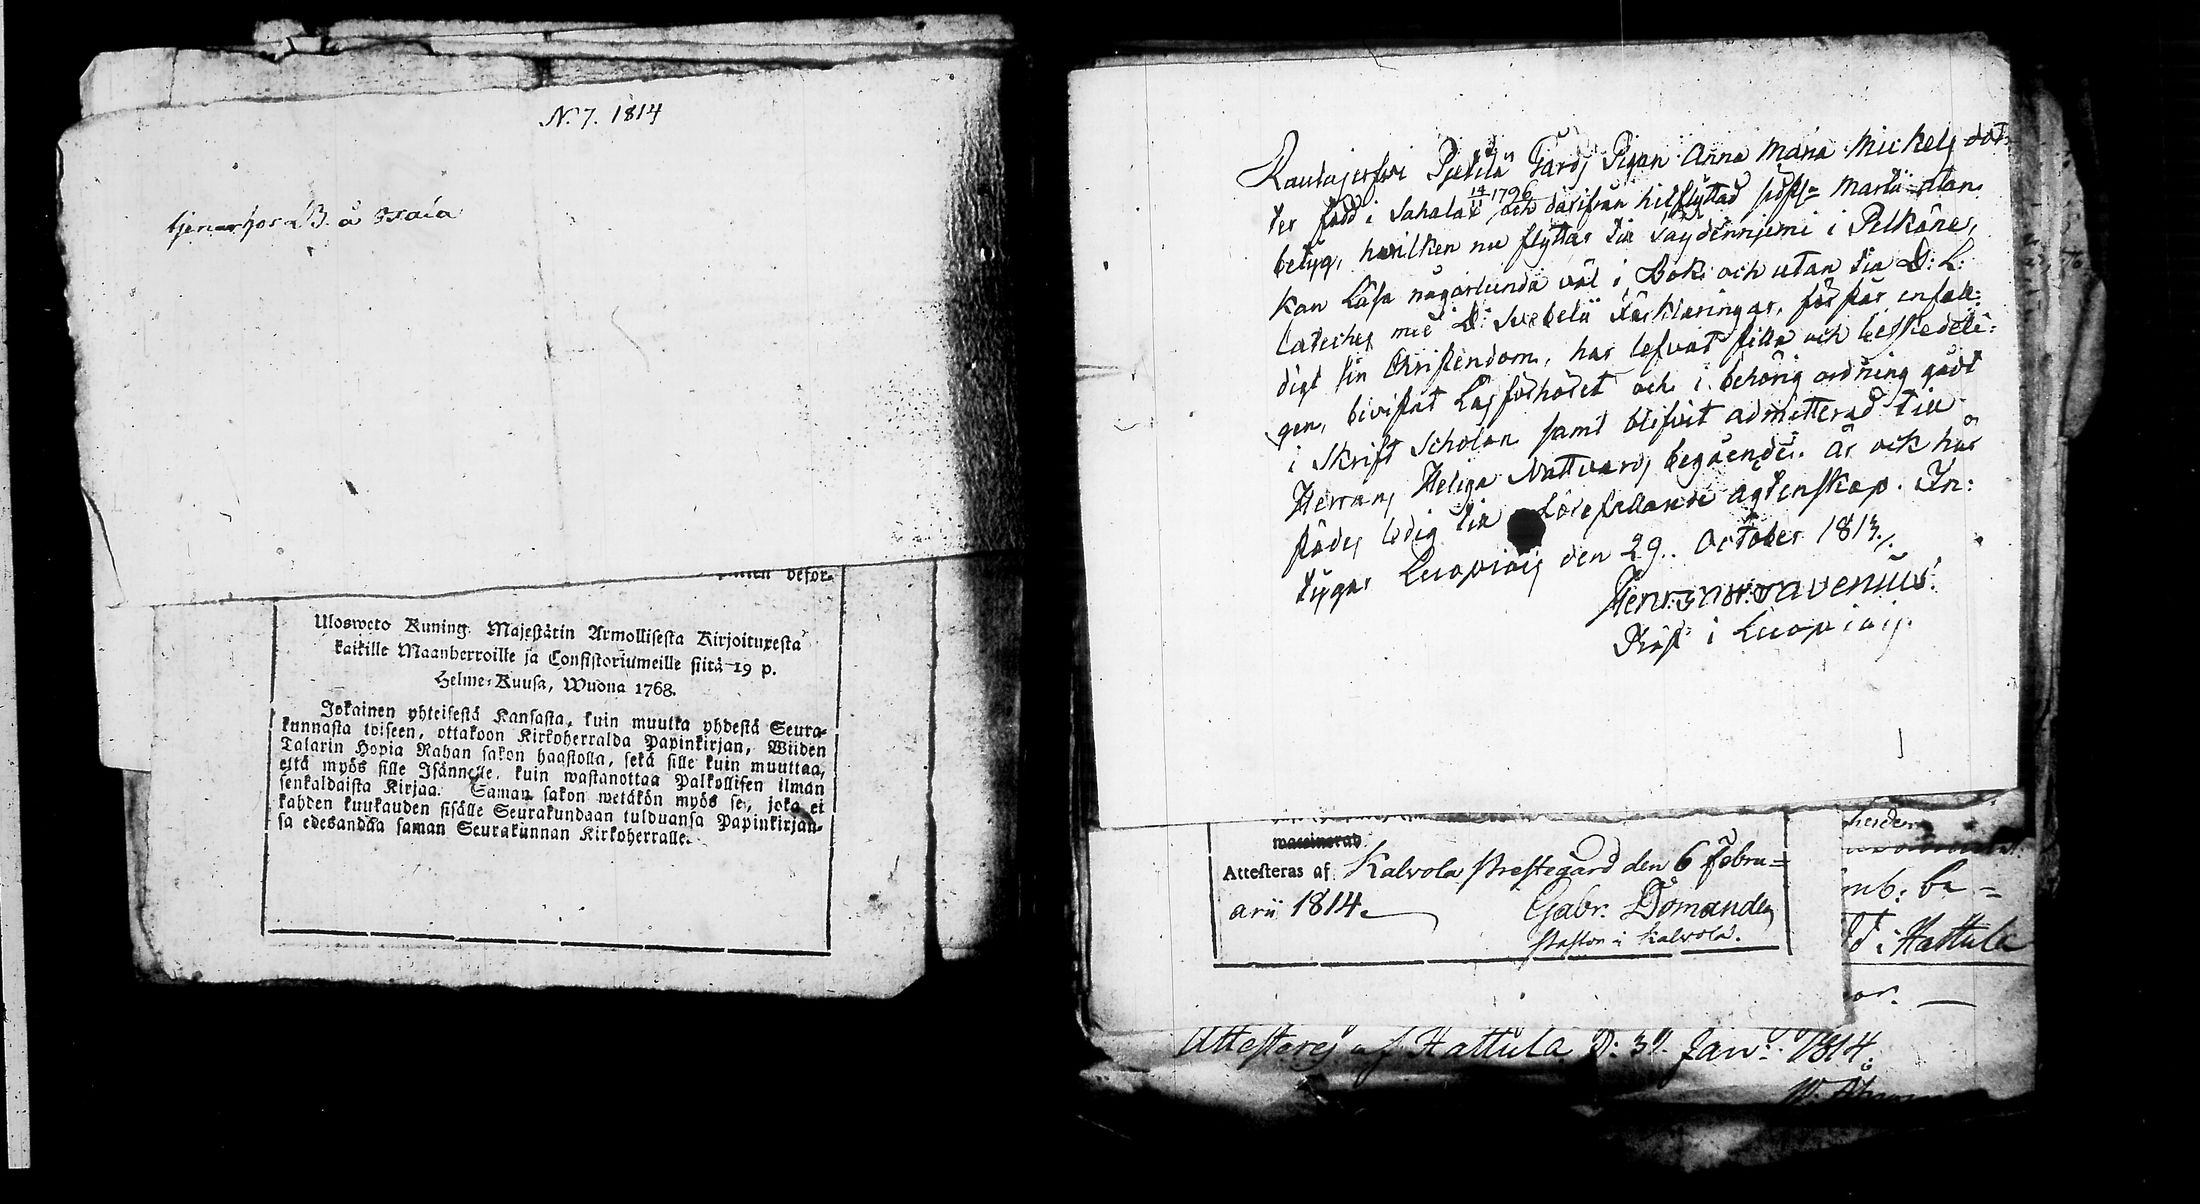 N:7. 1814
tjenar hos B. å
Ulosweto Kuning. Majestätin Armollisesta Kirjoituxesta
kaikille Maanherroille ja Consistoriumeille siitä 19 p.
Helme-Kuusa, Wuona 1768.
Jokainen yhteisestä Kansasta, kuin muutta yhdestä Seura-
kunnasta toiseen, ottakoon Kirkoherralda Papinkirjan, Wiiden
Talarin Hopia Rahan sakon haastolla, sekä sille kuin muuttaa,
että myös sille Isännelle, kuin wastanottaa Palkollisen ilman
senkaldaista Kirjaa. Saman sakon wetäkön myös se, joka ei
kahden kuukauden sisälle Seurakundaan tulduansa Papinkirjan-
sa edesandaa saman Seurakunnan Kirkoherralle.
Rautajerfwi Pietilä Gårds Pigan Anna Maria Michels dot-
ter född i Sahala 14/11 1796 och därifrån hitflyttad sidstl. Martii utan
betyg, hwilken nu flyttar till i Pelkäne,
kan Läsa någorlunda väl i Bok och utan till D: L:
Catechez med D: Svebelii Förklaringar, förstår enfall-
digt sin Christendom, har lefvat stilla och beskedeli-
gen, bivistat Läsförhöret och i behörig ordning gådt
i Skrift Scholan samt blifvit admitterad till
Herrans Heliga Nattvards begående. Är ock här
städes ledig till Lofefallande agtenskap. In-
tygar Luopiois den 29. October 1813.
Henr: Avenius.
Präst i Luopiois.
Attesteras af Kalvola Prestegård den 6 Febru=
arii 1814.
Gabr. Domander
Pastor i Kalvola.
mb: be-
i Hattula
Attesteras af Hattula D: 31. Jan: 1814.